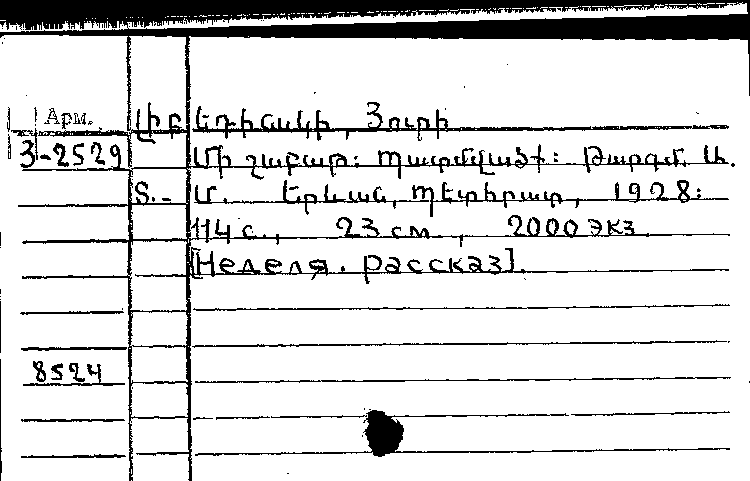 Арм. Լիբեդինսկի, Յուրի
3-2529 Մի շաբաթ: Պատմվածք: Թարգմ. Ա.
Տ.- Մ. Երևան, Պետհրատ, 1928:
114 с., 23 см., 2000 экз.
[Неделя. рассказ].
8524